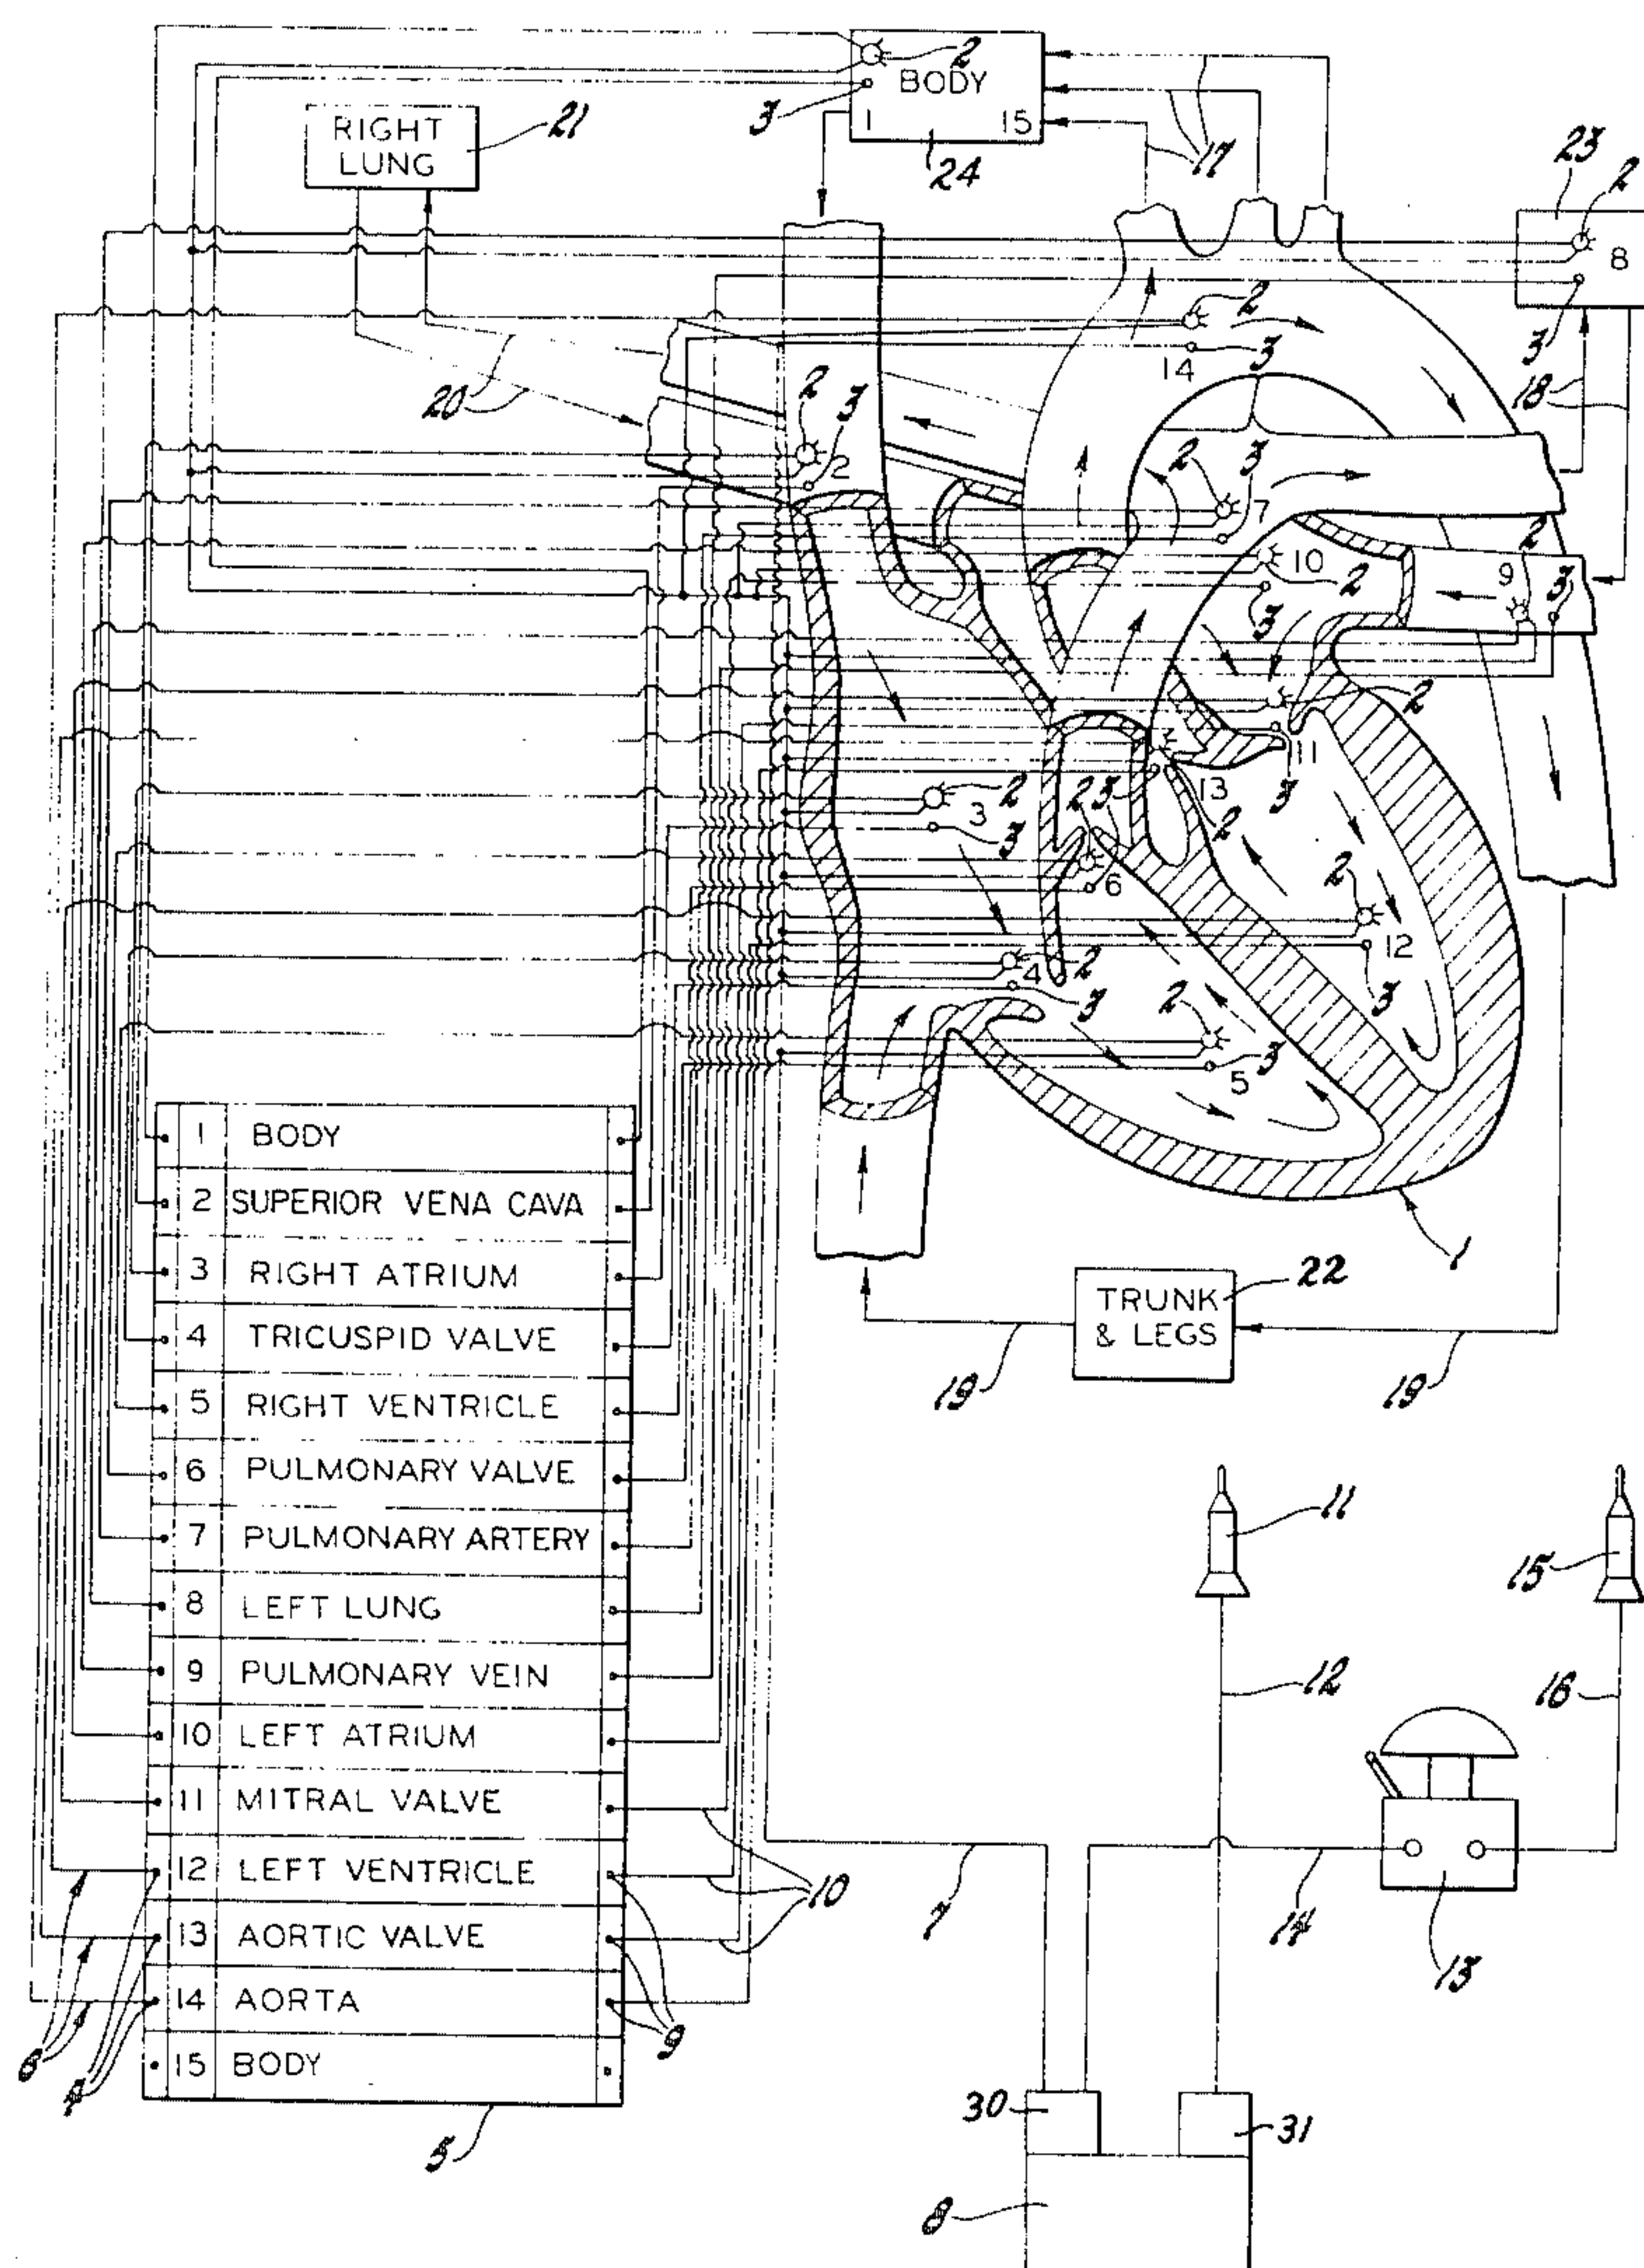 2
BODY
3
1 15
24
17
RIGHT
LUNG
21
23
2
8
3
18
20
2
3
2
2
3
14
2
3
7
10
2
3
2
9
3
2
11
3
13
2
2 3
6
2
3
3
2
12
3
2
4
3
2
3
5
1
TRUNK
& LEGS
22
19
19
1 BODY
2 SUPERIOR VENA CAVA
3 RIGHT ATRIUM
4 TRICUSPID VALVE
5 RIGHT VENTRICLE
6 PULMONARY VALVE
7 PULMONARY ARTERY
8 LEFT LUNG
9 PULMONARY VEIN
10 LEFT ATRIUM
11 MITRAL VALVE
12 LEFT VENTRICLE
13 AORTIC VALVE
14 AORTA
15 BODY
6
4
5
9
10
7
11
12
15
16
14
13
30
31
8